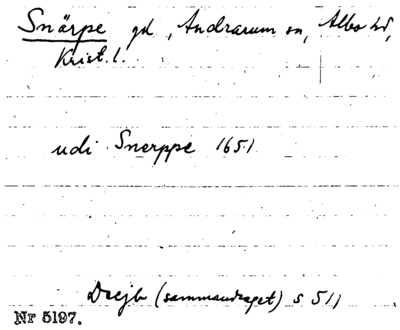 Snärpe gd, Andrarum sn, Albo hd,
Krist. l.
udi Snerppe 1651
Dsejb (sammandraget) s 511
Nr 5197.